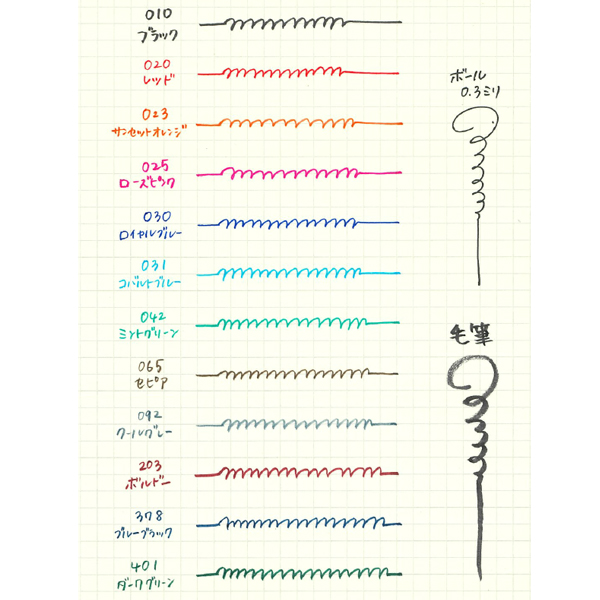 010
ブラック
020
レッド
023
サンセットオレンジ
025
ローズピンク
030
ロイヤルブルー
031
コバルトブルー
042
ミントグリーン
065
セピア
092
クールグレー
203
ボルドー
378
ブルーブラック
401
ダークグリーン
ボール
0.3ミリ
毛筆